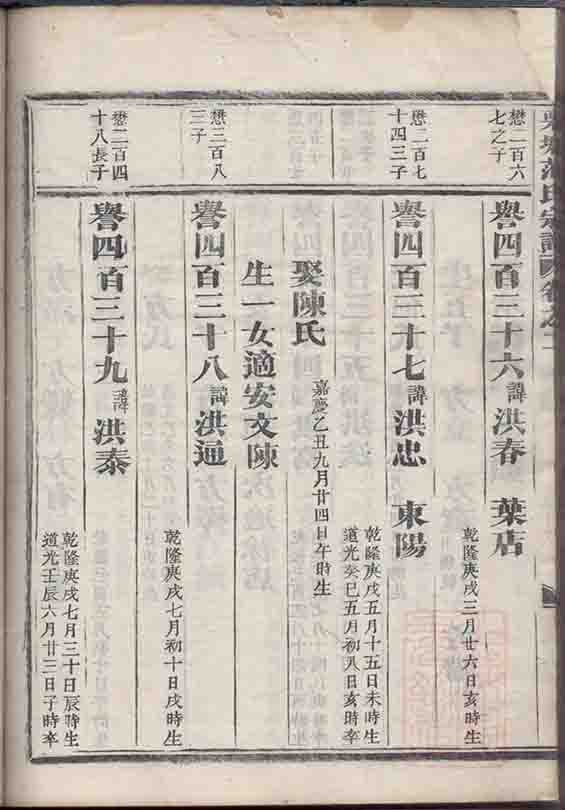 范氏宗譜
卷之二
懋二百六
七之子
譽四百三十六 諱 洪春 葉店
乾隆庚戌三月廿六日亥時生
懋二百七
十四三子
譽四百三十七 諱 洪忠 東陽
乾隆庚戌五月十五日未時生
道光癸巳五月初八日亥時卒
娶陳氏 嘉慶乙丑九月廿四日午時生
生一女適安文陳
懋三百八
三子
譽四百三十八 諱 洪通
乾隆庚戌七月初十日戌時生
懋二百四
十八長子
譽四百三十九 諱 洪泰
乾隆庚戌七月三十日辰時生
道光壬辰六月廿三日子時卒